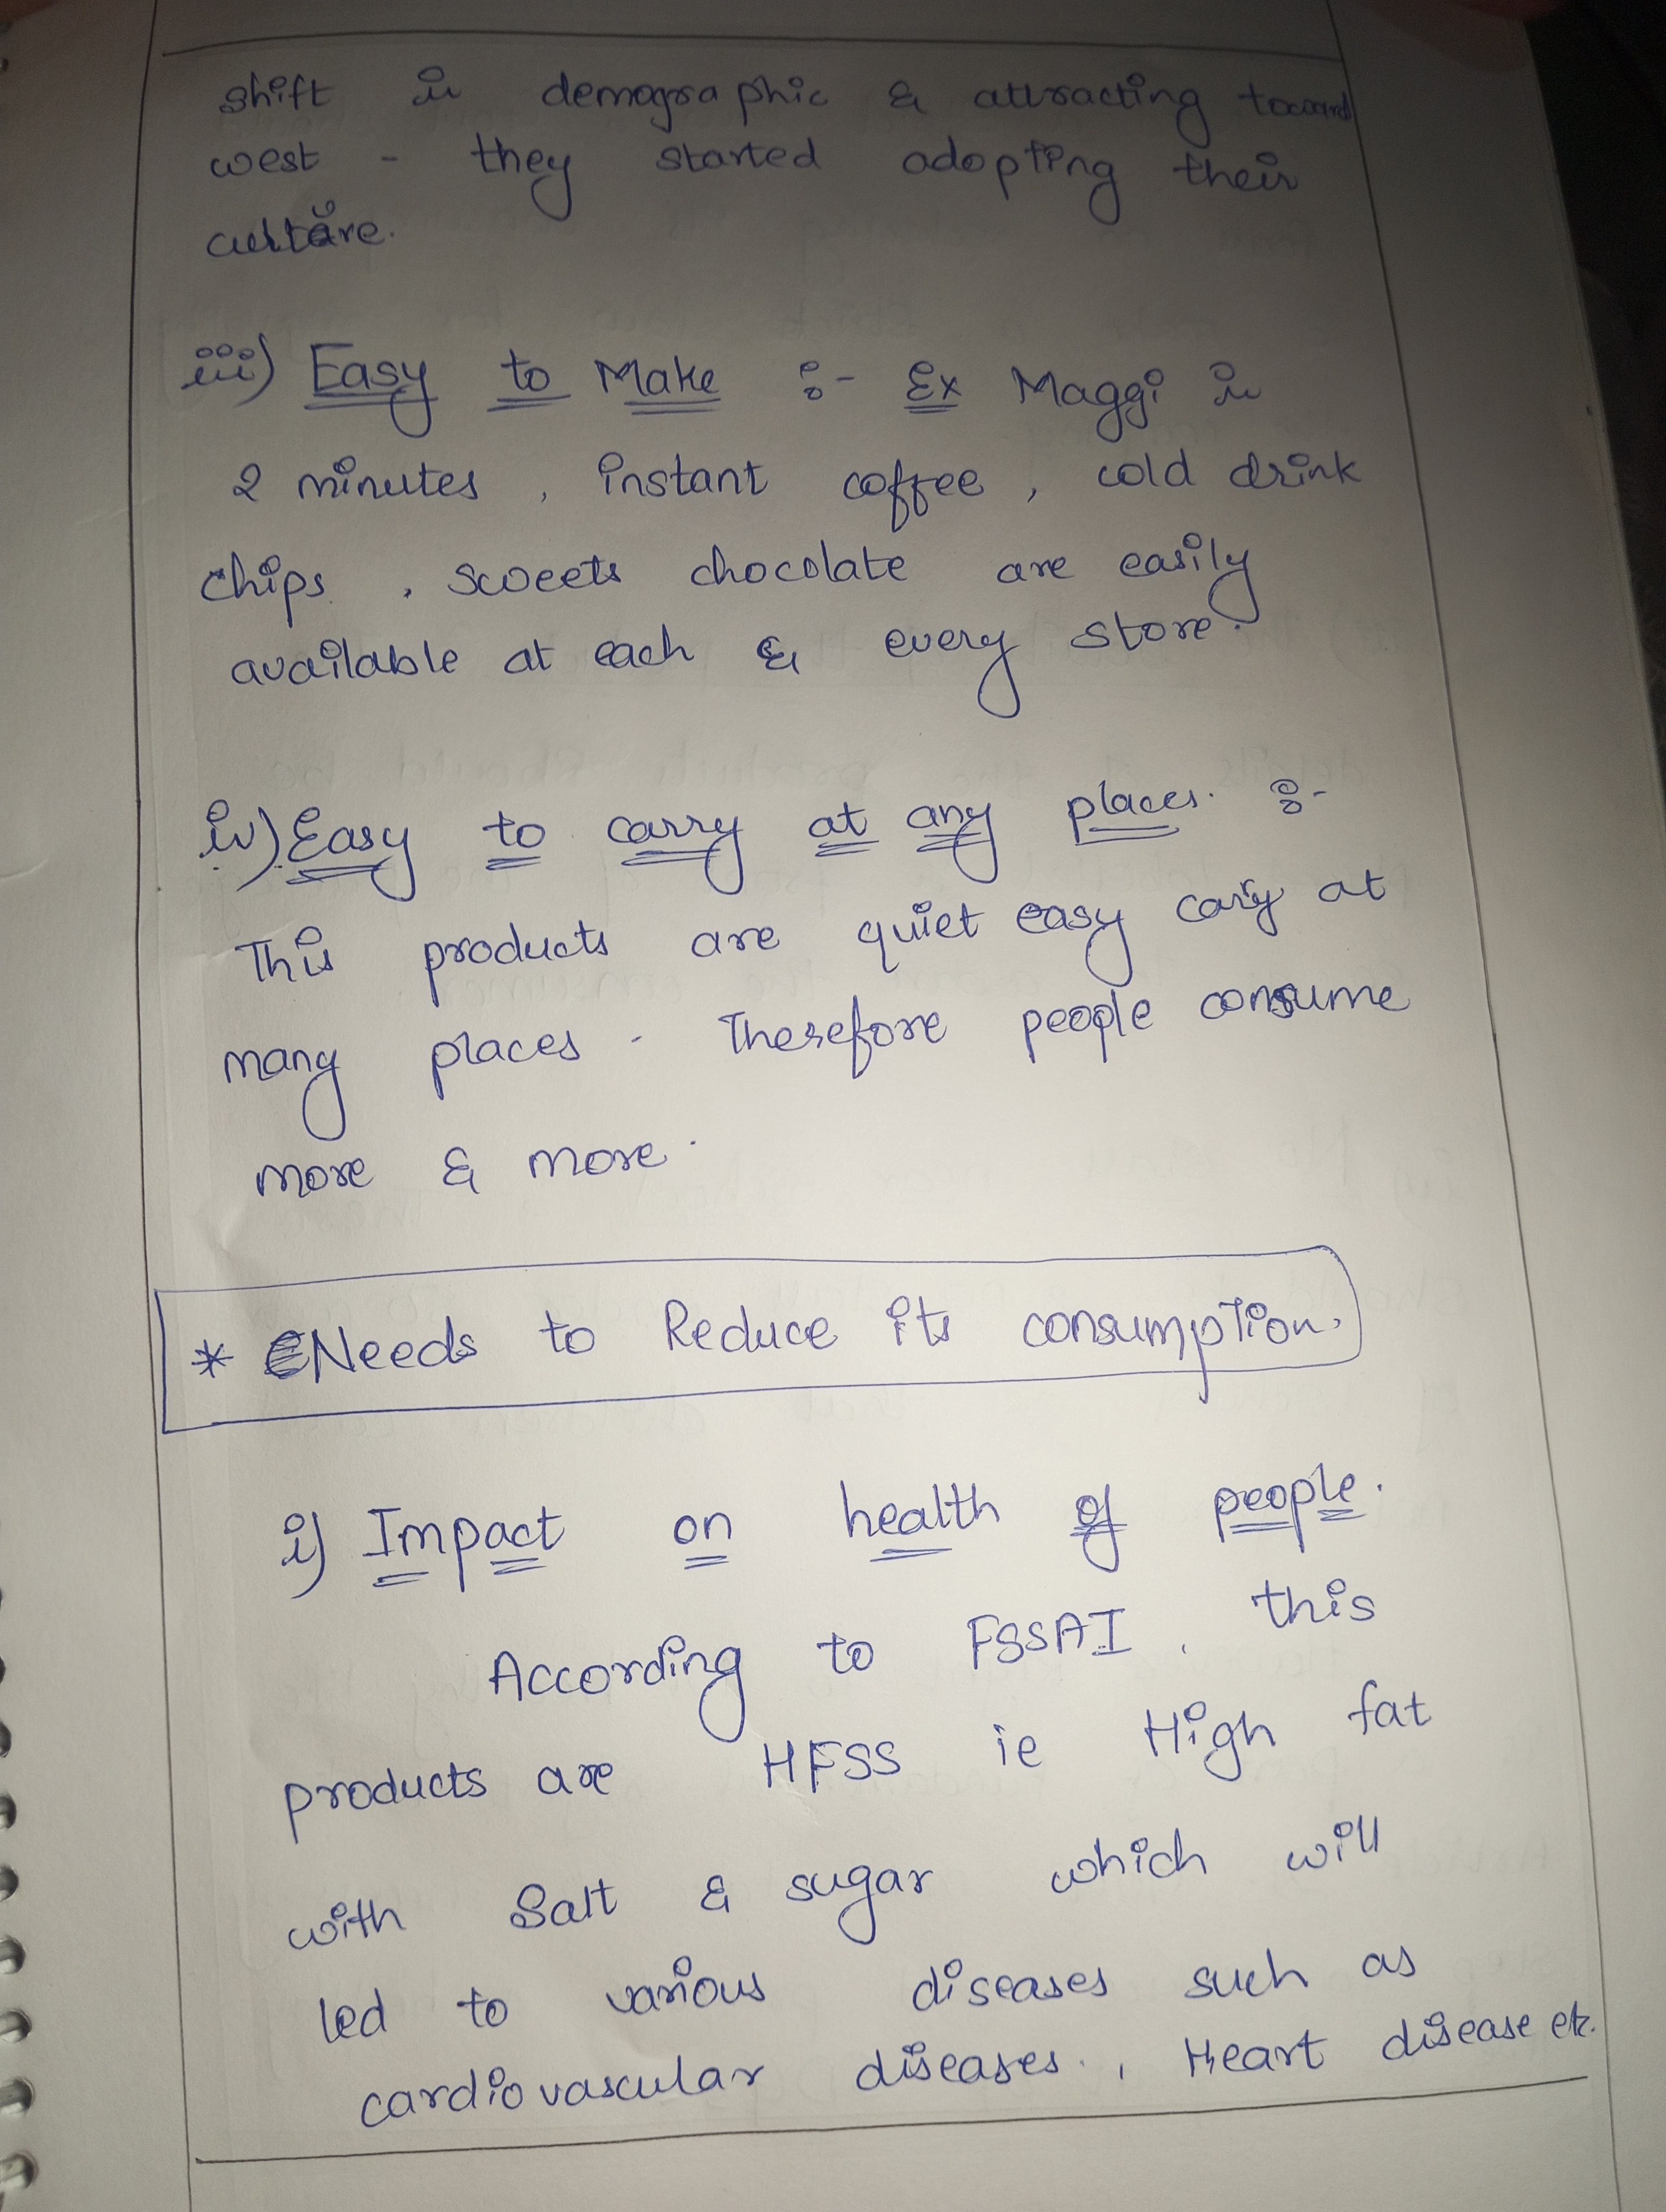 shift in demographic & attracting toward
west - they started adopting their
culture.
iii) Easy to Make :- Ex Maggi in
2 minutes , instant coffee , cold drink
chips , sweets chocolate are easily
available at each & every store.
iv) Easy to carry at any places. :-
This products are quiet easy carry at
many places - Therefore people consume
more & more.
* Needs to Reduce its consumption.
i) Impact on health of people.
According to FSSAI , this
products are HFSS ie High fat
with Salt & sugar which will
led to various diseases such as
cardiovascular diseases. , Heart disease etc.